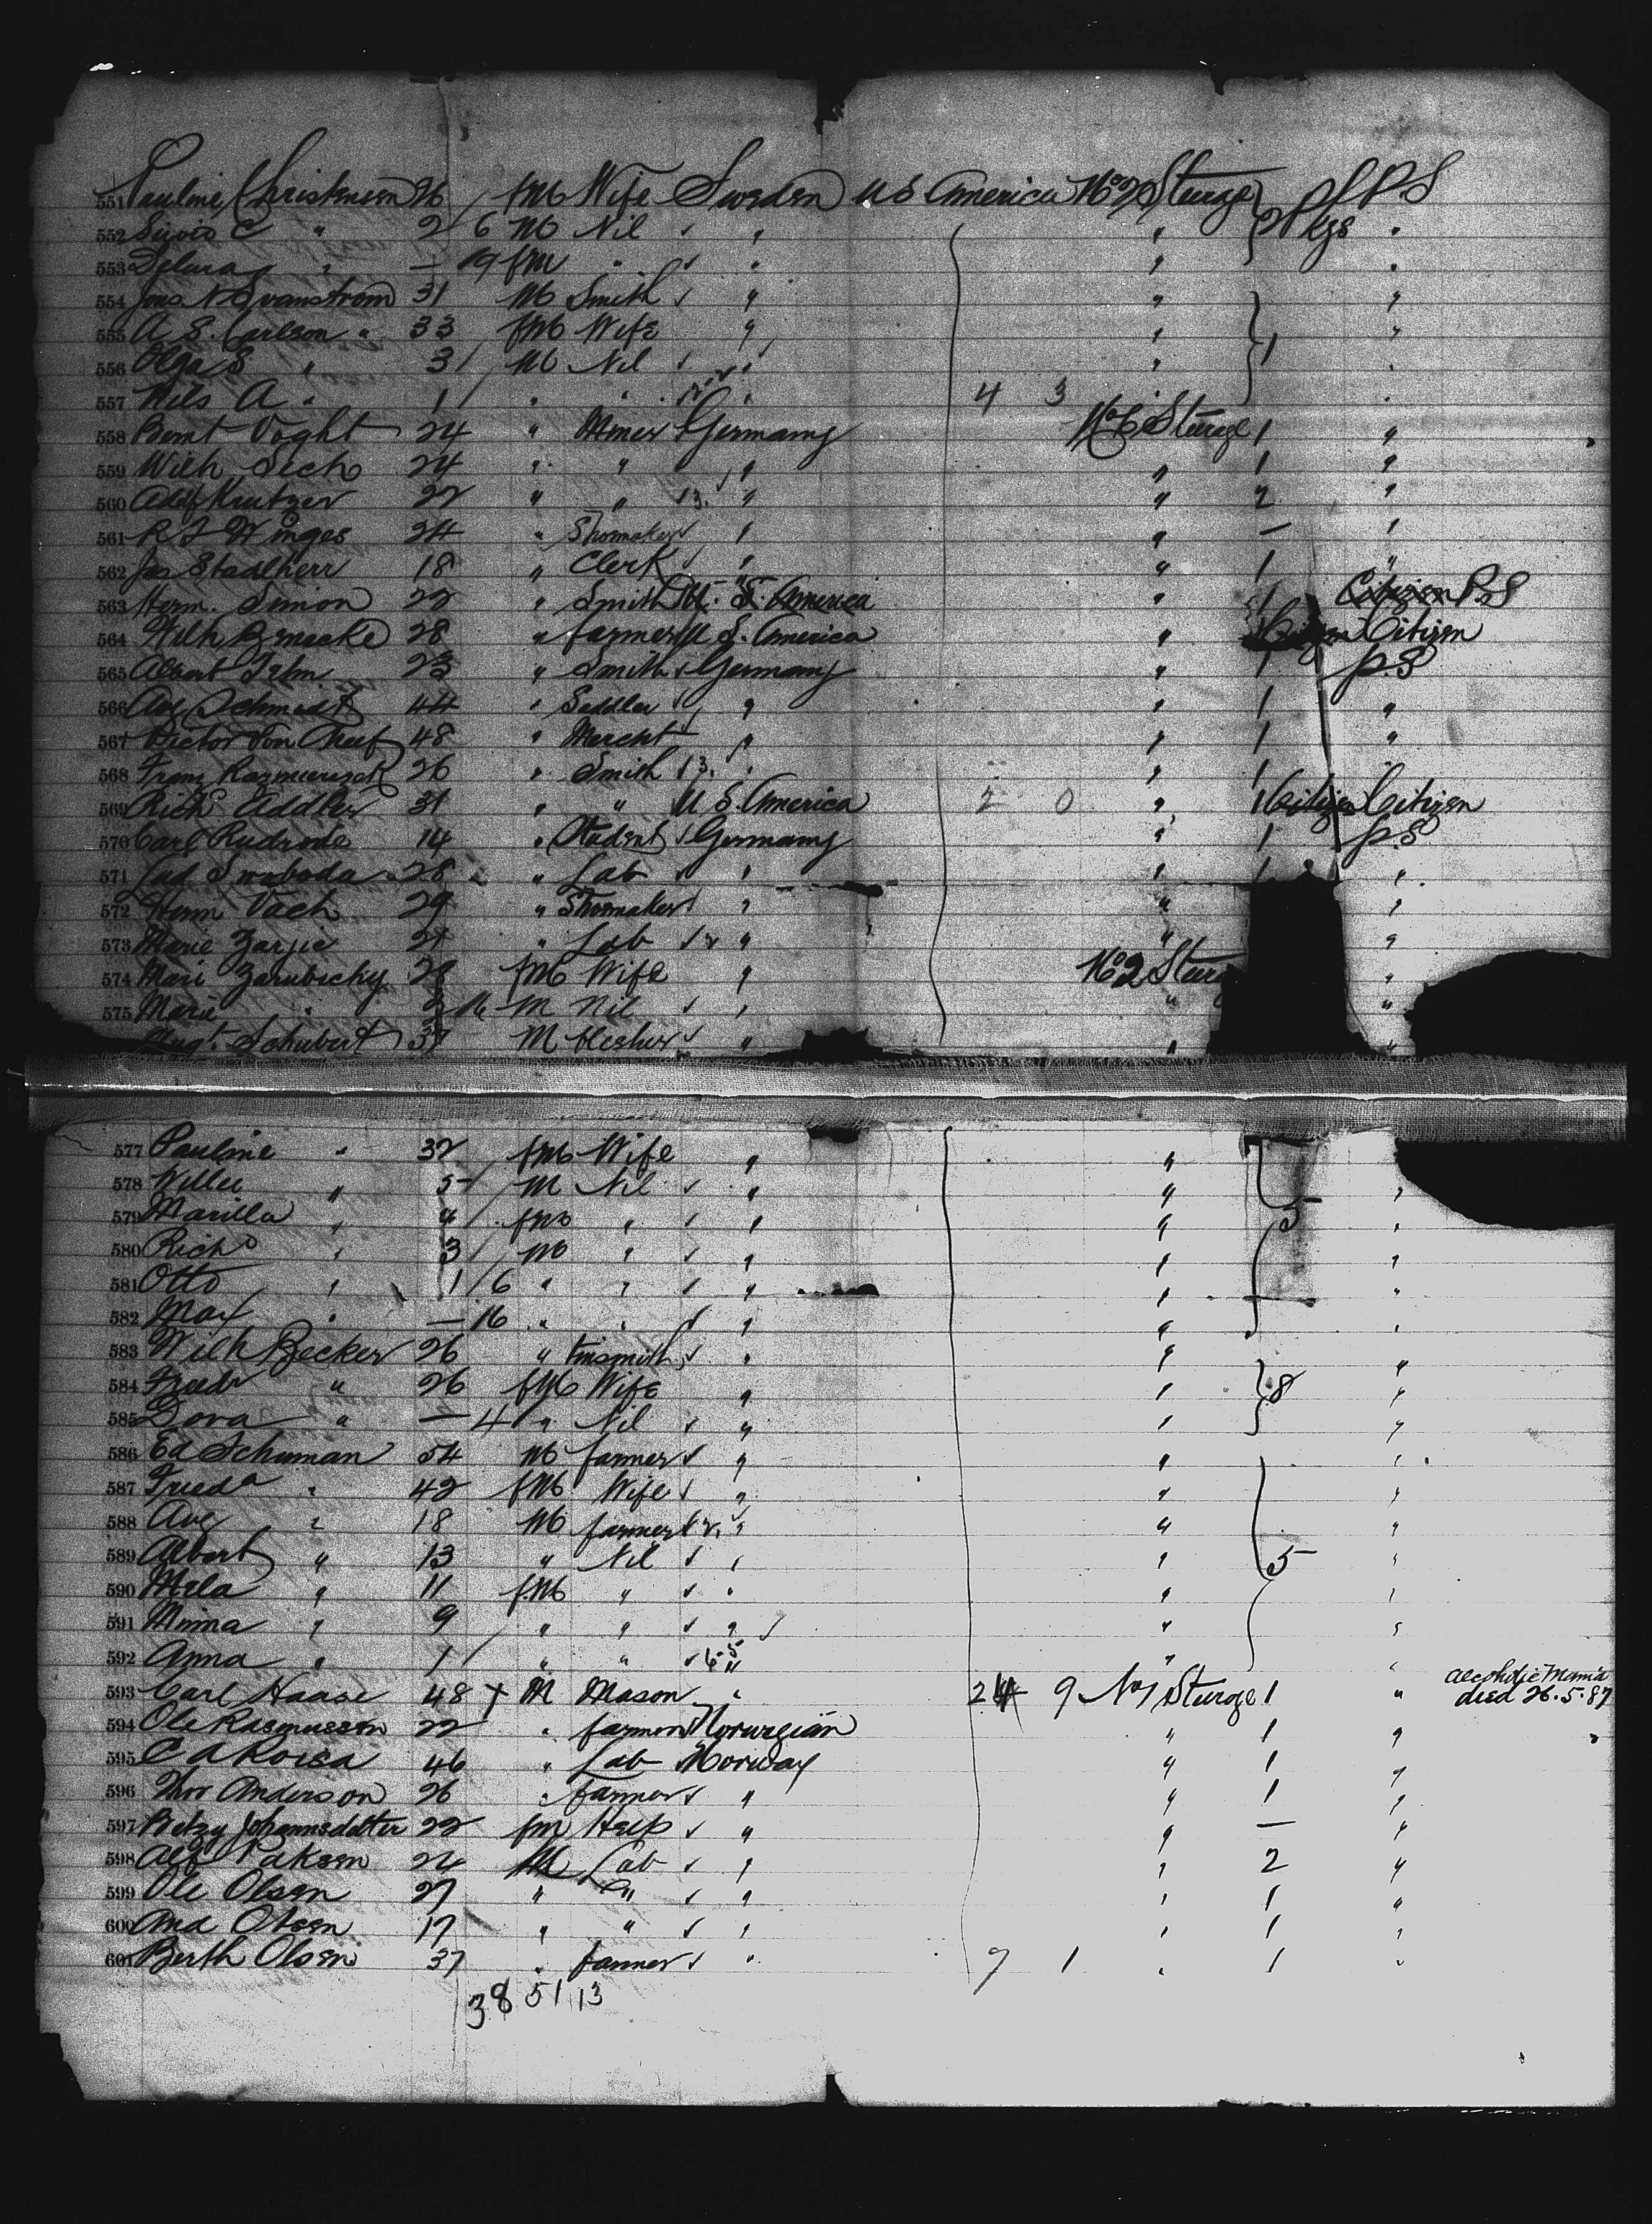 551 Pauline Christensen 26 / fM Wife Sweden U S America No 2 Sturge 2 Pkgs P S
552 C " 2 6 M Nil " " "
553 " — 19 fM " " " "
554 Jons N Svanstrom 31 M Smith " " "
555 A S. Carlson " 33 fM Wife " " "
556 Olga S " 3 / M Nil " " 1 "
557 Nils A " 1 / " " " 4 3 "
558 Bernt Voght 24 " Miner Germany No 6 Sturge 1 "
559 Wilh Sech 24 " " " " 1 "
560 Adolf Krutzer 22 " " 13. " " 2 "
561 R F Winges 24 " Shomaker " " — "
562 Jos Stadlherr 18 " Clerk " " 1 "
563 Herm. Simon 22 " Smith U. S. America " 1 Citizen P S
564 Wilh 28 " farmer U S. America " 1 Citizen Citizen
565 Albert 23 " Smith Germany " 1 P. S
566 Aug Schmidt 44 " Saddler " " 1 "
567 Victor Von 48 " Mercht " " 1 "
568 Franz 26 " Smith 13. " " 1 "
569 Rich Addler 31 " " U S. America 2 0 " 1 Citizen Citizen
570 Carl Rudrode 14 " Student Germany " 1 P. S
571 Lad Swoboda 28 " Lab " " 1 "
572 Herm Vach 29 " Shomaker " " "
573 Marie " Lab " " "
574 Mari Zarubicky 28 fM Wife " No 2 Sturg "
575 Marie " M Nil " " "
Augt. Schubert 37 M " " "
577 Pauline " 32 fM Wife " " "
578 Willie " 5 / M Nil " " 5 "
579 Marilla " 4 / fM " " " "
580 Rich " 3 / M " " " "
581 Otto " 1 / 6 " " " " "
582 Max " — 16 " " " " "
583 Wilh Becker 26 " tinsmith " " "
584 " 26 fM Wife " " 8 "
585 Dora " — 4 " Nil " " "
586 Ed Schuman 54 M farmer " " "
587 Frieda " 42 fM Wife " " "
588 Aug " 18 M farmer " " "
589 Albert " 13 " Nil " " 5 "
590 Mila " 11 fM " " " "
591 Minna " 9 " " " " "
592 Anna " 1 / " " " " "
593 Carl Haase 48 + M Mason " 24 9 No 1 Sturge 1 " alcoholic Mania
died 26.5.87
594 Ole Rasmussen 22 " farmer Norwegian " 1 "
595 C A 46 " Lab Norway " 1 "
596 Thor Anderson 26 " farmer " " 1 "
597 Betzy Johannsdotter 22 fM Help " " — "
598 Alf 24 M Lab " " 2 "
599 Ole Olsen 27 " " " " 1 "
600 And Olsen 17 " " " " 1 "
601 Berth Olsen 37 " farmer " 7 1 " 1 "
38 51 13